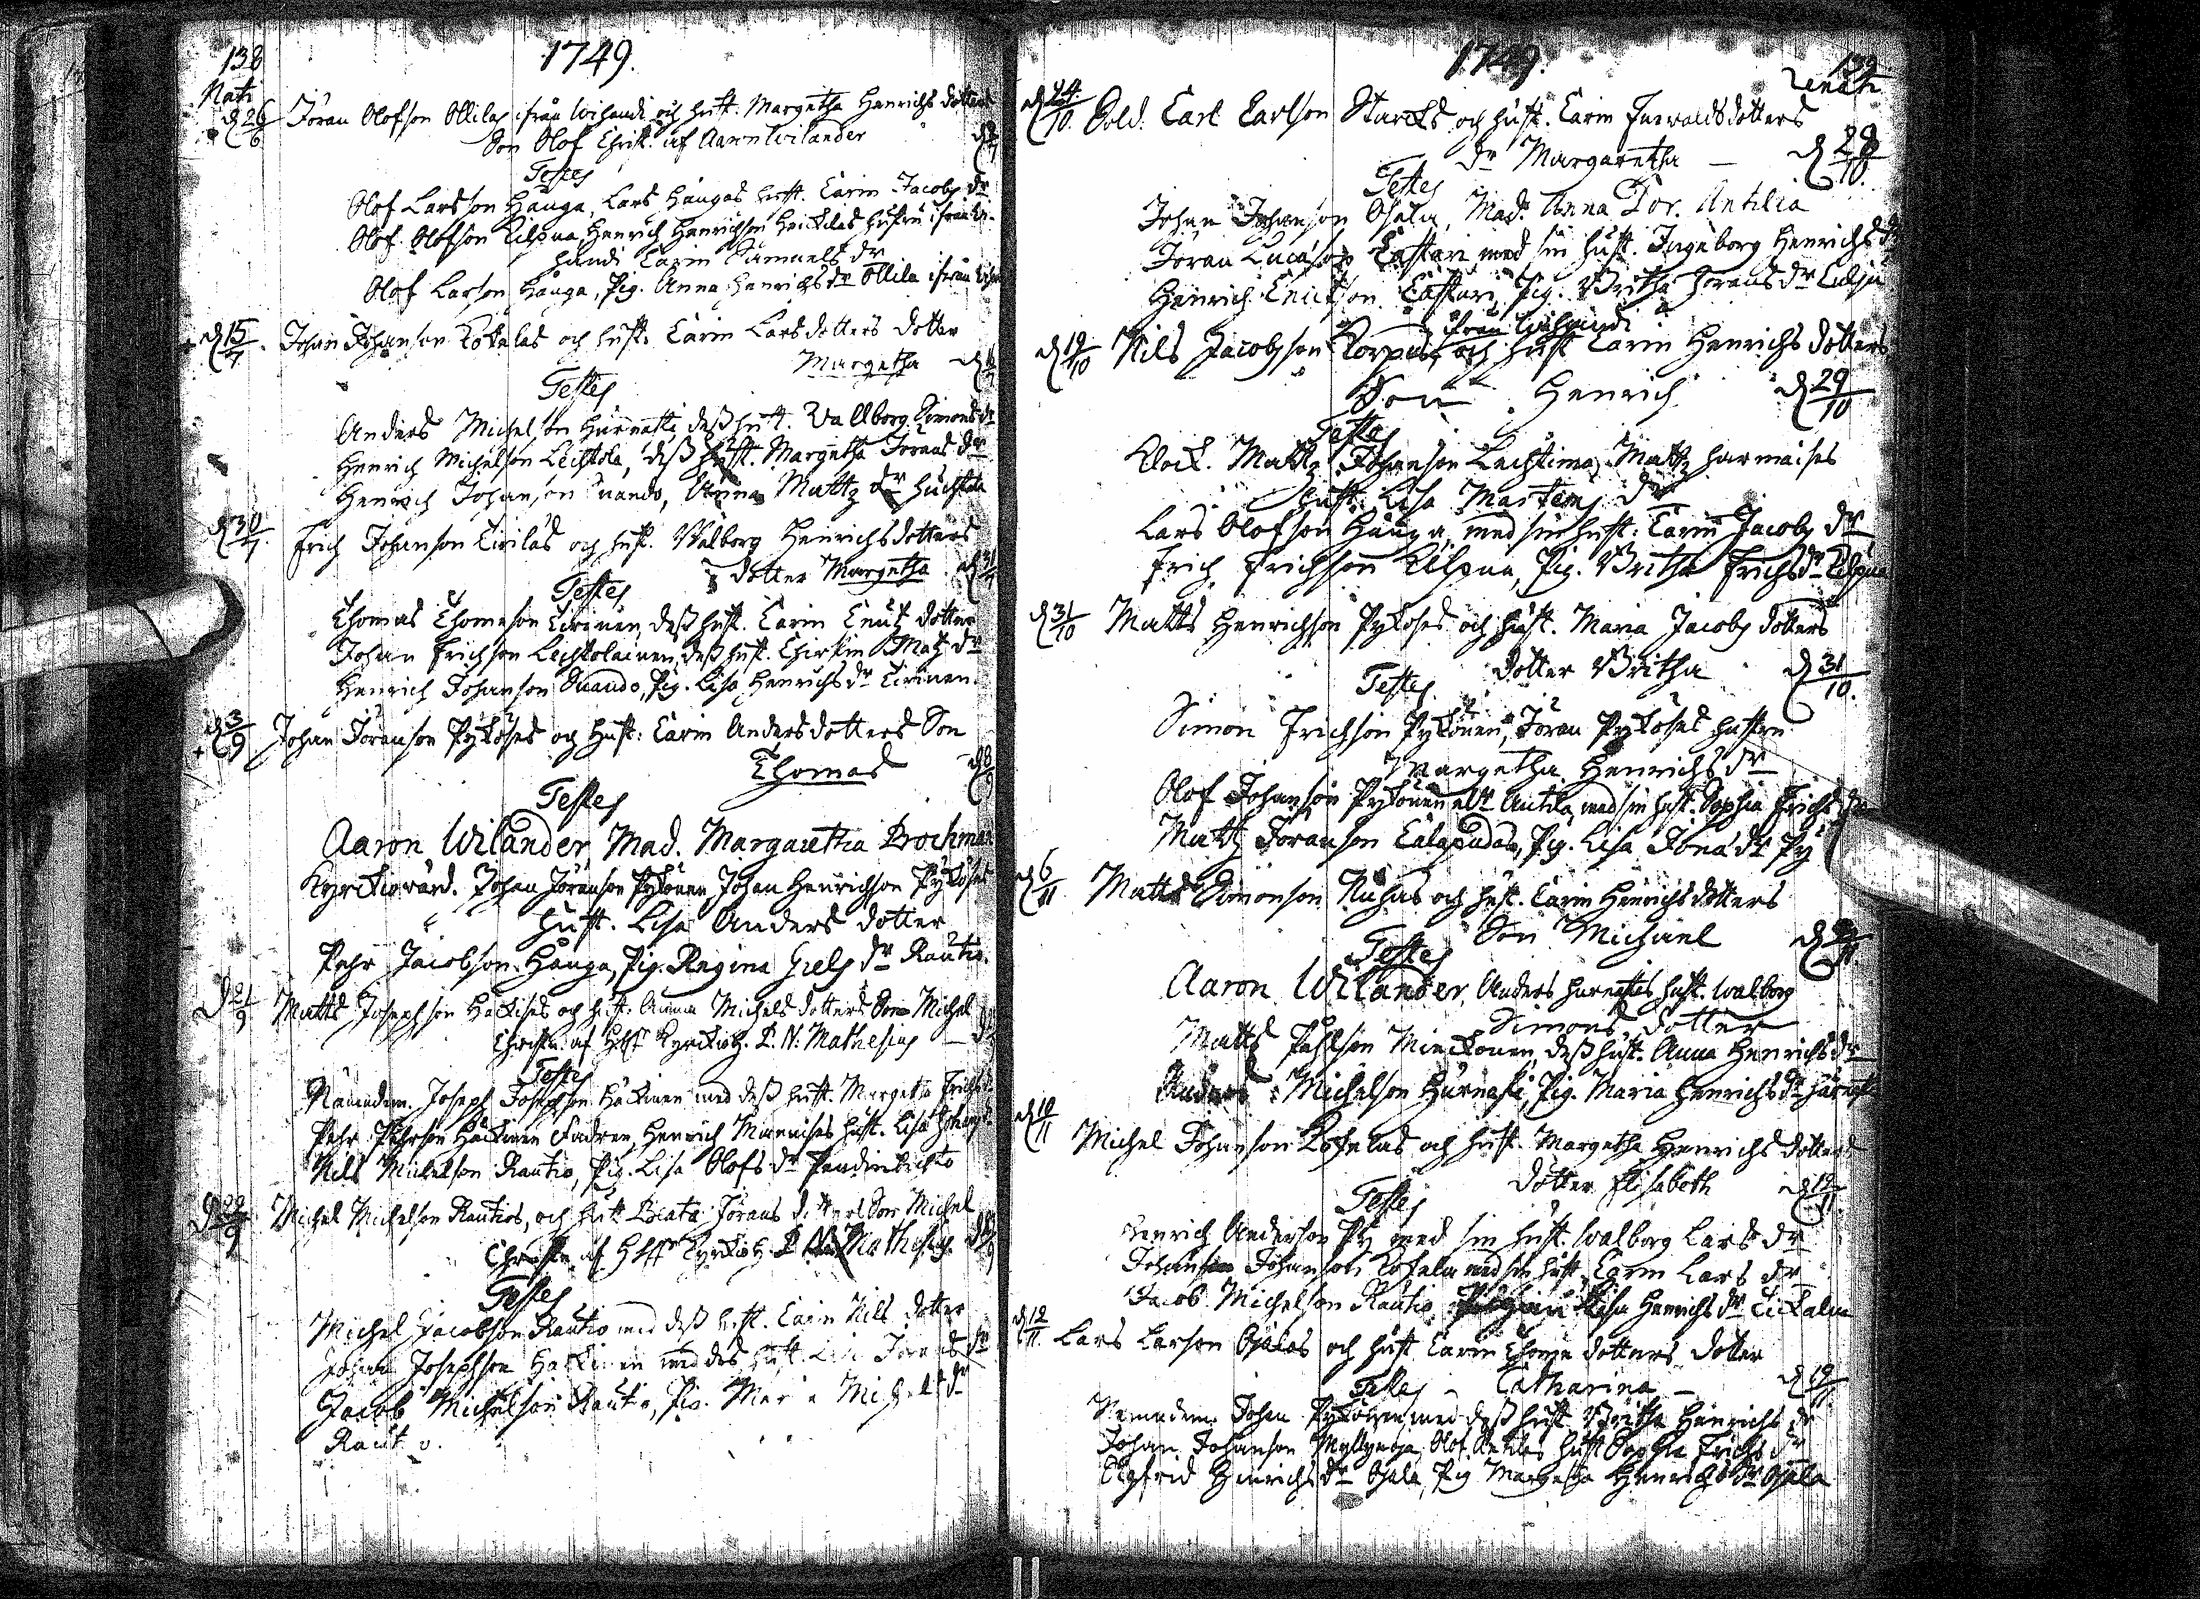 138
1749.
Nati
d 26/6 Jöran Olofson Ollilas ifrån Wihandi och hust. Margetha Henrichs dotters
Son Olof Christ. af Aaron Wilander
Testes
Olof Larsson Hanga, Lars Hangas hust. Carin Jacobs dr
Olof Olofson Kilpua, Henrich Henrichson Heickilas hustru ifrån Wi-
handi Carin Samuels dr
Olof Larson Hanga, Pig. Anna Henrichs dr Ollila ifrån
d 15/7 Johan Johanson Kokalas och hust. Carin Larsdotters dotter
Margetha
Testes
Anders Michelson Hurnasti dess hust. Wallborg Simons dr
Henrich Michelson Lechtola, dess hust. Margetha Jörans dr
Henrich Johanson Suando, Anna Mattz dr
d 30/7 Erich Johanson Eirilas och hust. Walborg Henrichsdotters
dotter Margetha d 31/7
Testes
Thomas Thomeson Eirinen, dess hust. Carin Knutz dotter
Johan Erichson Lechtolainen, dess hust. Chirstin Matz dr
Henrich Johanson Suando, Pig. Lisa Henrichs dr Eirinen.
d 3/9 Johan Jöranson Pyköses och hust. Carin Andersdotters Son
Thomas d 8/9
Testes
Aaron Wilander, Mad. Margaretha Brochman
Kyrckiovärd. Johan Jöranson Pykönen, Johan Henrichson Pyköses
hust. Lisa Anders dotter
Pehr Jacobson Hanga, Pig. Regina Grels dr Rautio.
d 21/9 Matts Josephson Hackises och hust. Anna Michelsdotters Son Michel
Christn af Kyrckioh. P. N. Mathesius
Testes
Nämndem. Joseph Josephson Häckinen med dess hust. Margetha Erichs
Pehr Pehrson Häckinen Fadren, Henrich Mannises hust. Lisa
Nils Michelson Rautio, Pig. Lisa Olofs dr
d 29/9 Michel Michelson Rautios, och hust Beata Jörans dotters Son Michel
Christn af Kyrckioh. P. N. Mathesius
Testes
Michel Jacobson Rautio med dess hust. Carin Nils dotter
Johan Josephson Hackinen med des hust. Jörans dr
Jacob Michelson Rautio, Pig. Maria Michels dr
Rautio.
1749.
139
Renati
d 24/10 Sold. Carl Carlson Starcks och hust. Carin dotters
dr Margaretha d 28/10.
Testes
Johan Johanson Ojala, Mad. Anna Dor. Antilia
Jöran Lucason Castari med sin hust. Ingeborg Henrichs dr
Henrich Erickson Castari, Pig. Britha Jorans dr
ifrån Wihandi
d 19/10 Nils Jacobson Korpus och hust Carin Henrichs dotters
Son Henrich d 29/10
Testes
Klock. Mattz Johanson Lechtima, Mattz Harmaises
hust. Lisa Martens dr
Lars Olofson Hanga, med sin hust: Carin Jacobs dr
Erich Erichson Kilpua, Pig. Britha Erichs dr Kilpua
d 31/10 Matts Henrichson Pyköses och hust. Maria Jacobs dotters
dotter Britha d 31/10.
Testes
Simon Erichson Pykönen, Jöran Pyköses hustru
Margetha Henrichs dr
Olof Johanson Pykönen elr Antila, med sin hust. Sophia Erichs dr
Mattz Joranson Calapudas, Pig. Lisa Jöna dr Py
d 6/11 Matts Simonson Ruhas och hust. Carin Henrichsdotters
Son Michael
Testes
Aaron Wilander, Anders Hurnastes hust. Walborg
Simons dotter
Mattz Påhlson Mieckonen, dess hust. Anna Henrichs dr
Anders Michelson Hurnasti, Pig. Maria Henrichs dr
d 10/11 Michel Johanson Kokalas och hust. Margetha Henrichs dotters
dotter Elisabeth d 12/11
Testes
Henrich Anderson Py med sin hust. Walborg Lars dr
Johanson Johanson Kokala med sin hust. Carin Lars dr
Jacob Michelson Rautio, Lisa Henrichs dr
d 12/11 Lars Larson Ojalas och hust Carin Thomedotters dotter
Testes Catharina d 19/11
Nämndem. Johan Pykönen, med dess hust Britha Henrichs dr
Johan Johanson Myllyoja, Olof Antilas hust Sophia Erichs dr
Sigfrid Henrichs dr Ojala, Pig Margetha Henrichs dr Ojala